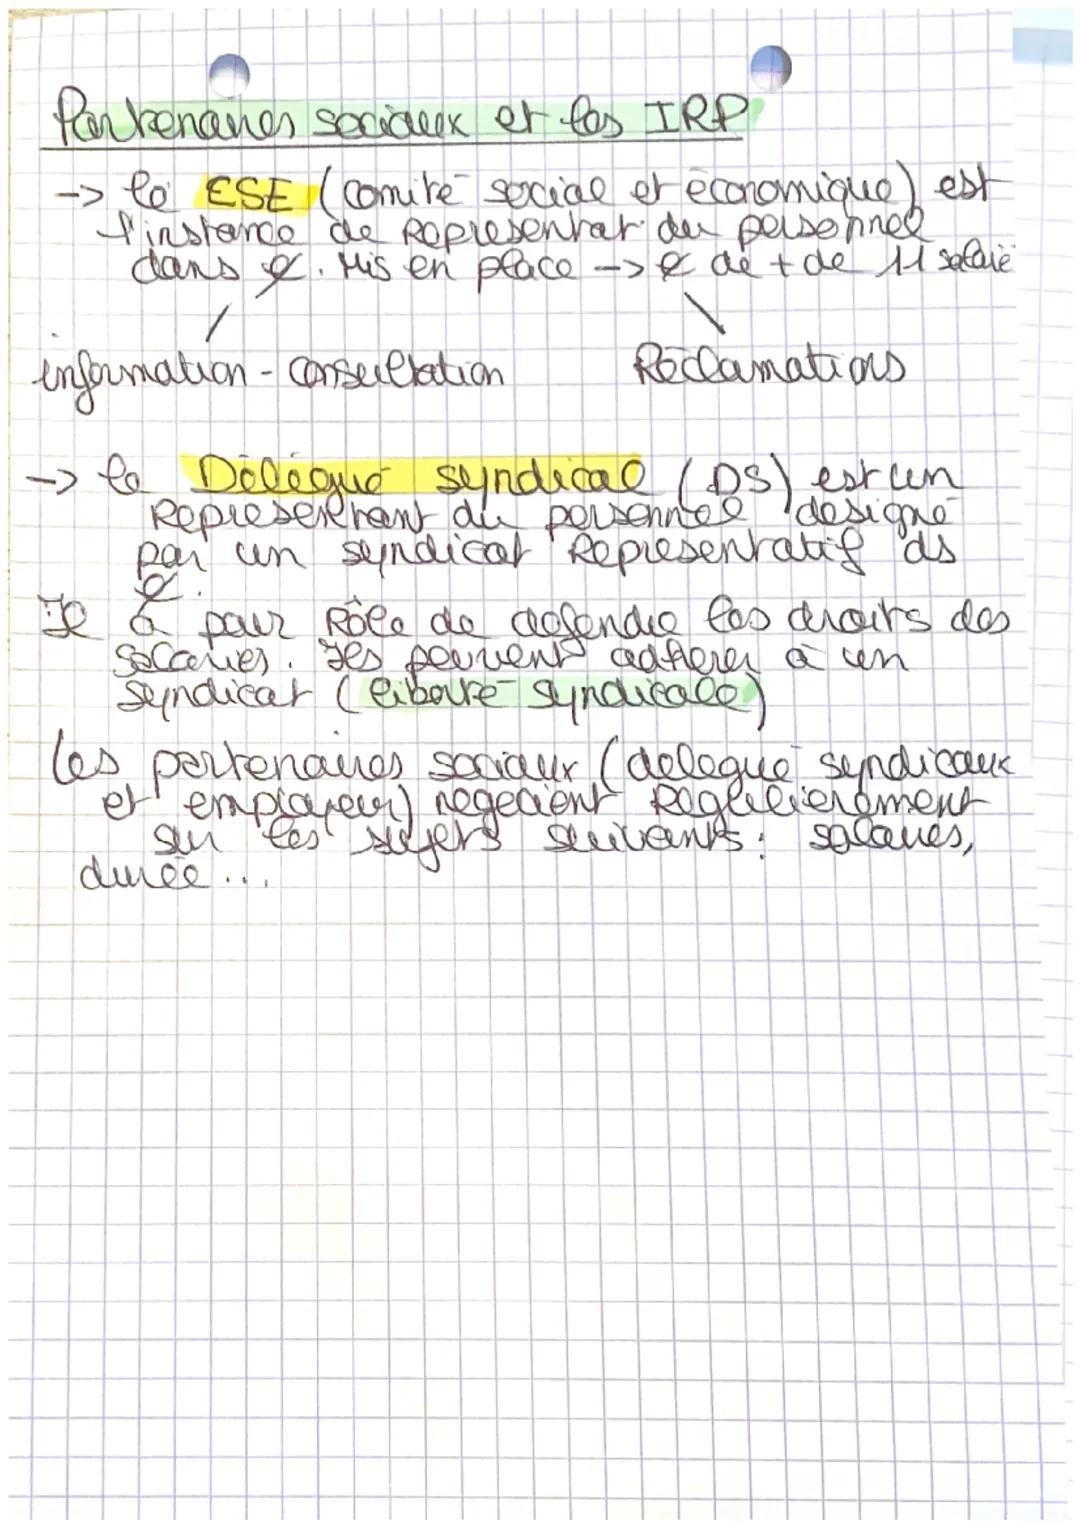 Partenaires sociaux et les IRP
-> le CSE (comité social et économique) est
l'instance de Représentat° du personnel
dans e. Mis en place -> e de + de 11 salarié
information - consultation Réclamations
-> le Délégué syndical (DS) est un
Représentant du personnel désigné
par un syndicat Représentatif ds
e.
Il a pour Rôle de défendre les droits des
salariés. Ils peuvent adhérer à un
syndicat (liberté syndicale)
Les partenaires sociaux (délégué syndicaux
et employeur) négocient Régulièrement
sur les sujets suivants : salaires,
durée ...